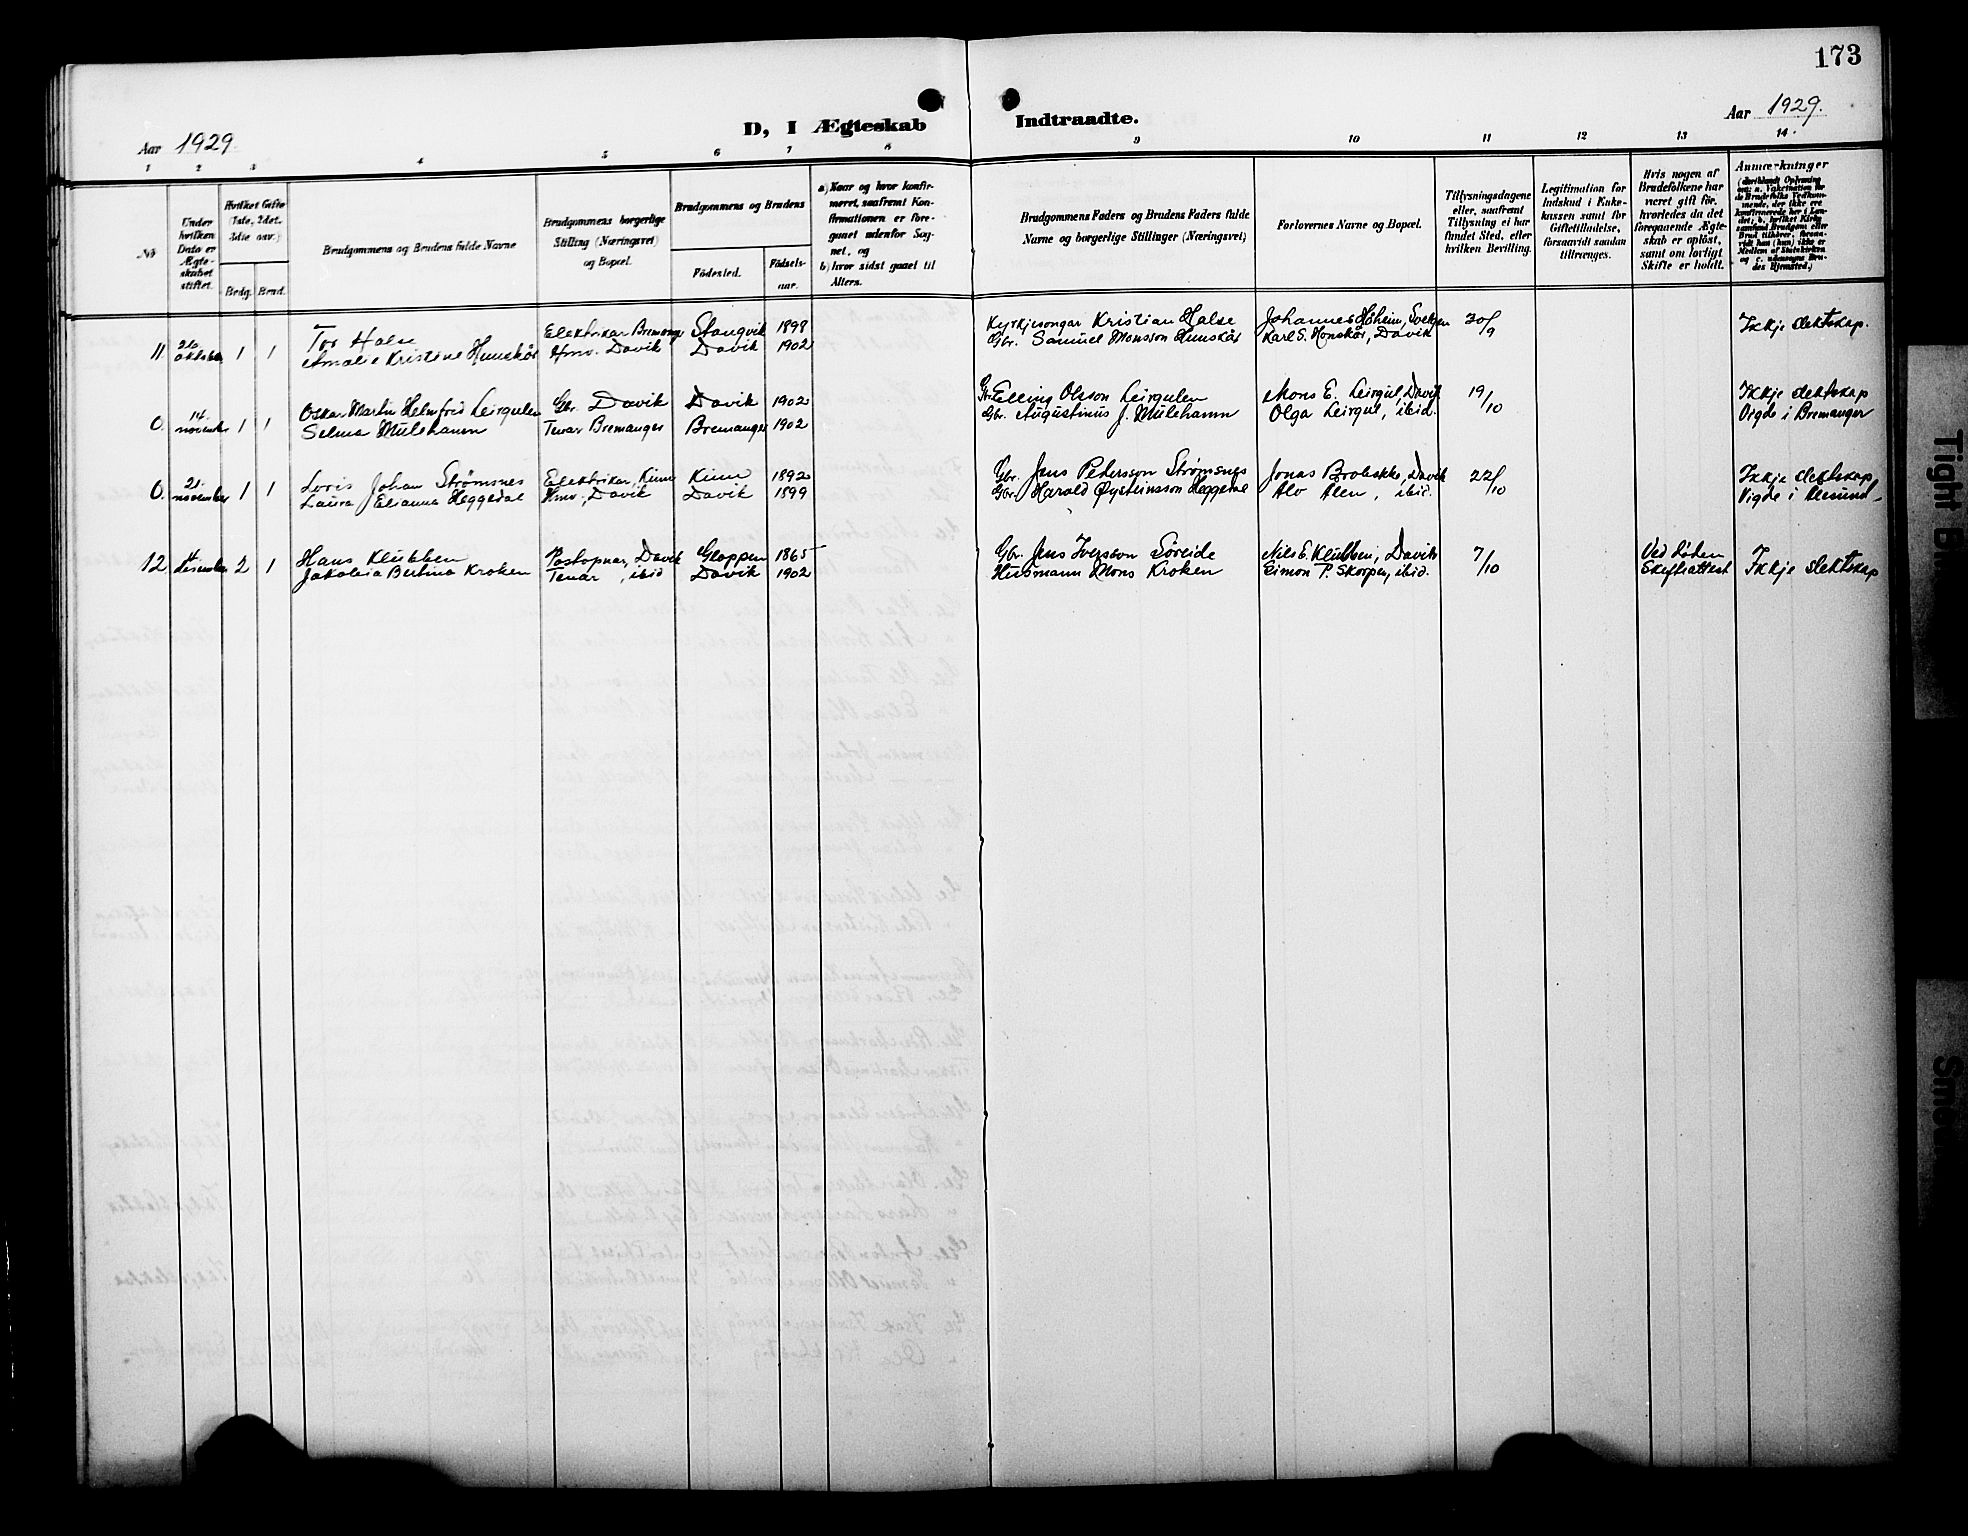 173
D, I Ægteskab Indtraadte.
Aar 1929
Aar 1929.
1 2 3 4 5 6 7 8 9 10 11 12 13 14.
No
Under hvilken Dato er Ægteskabet stiftet.
Hvilket Gifte (1ste, 2det, 3die osv.)
Brdg. Brud.
Brudgommens og Brudens fulde Navne
Brudgommens borgerlige Stilling (Næringsvei) og Bopæl.
Brudgommens og Brudens
Fødested. Fødselsaar.
a) Naar og hvor konfirmeret, saafremt Konfirmationen er foregaaet udenfor Sognet, og
b) hvor sidst gaaet til Alters.
Brudgommens Faders og Brudens Faders fulde Navne og borgerlige Stillinger (Næringsvei)
Forlovernes Navne og Bopæl.
Tillysningsdagene eller, saafremt Tillysning ei har fundet Sted, efter hvilken Bevilling.
Legitimation for Indskud i Enkekassen samt for Giftetilladelse, forsaavidt saadan tiltrænges.
Hvis nogen af Brudefolkene har været gift før, hvorledes da det foregaaende Ægteskab er opløst, samt om lovligt Skifte er holdt.
Anmærkninger
11 26 oktober 1 1 Tor Halse Elektrikar Bremanger Stangvik 1898 Kyrkjesongar Kristian Halse Johannes Høheim, 30/9 Ikkje slektskap.
Amalie Kristine Hunskår Hmv. Davik Davik 1902 Gbr. Samuel Monsson Hunskår Karl S. Honskår, Davik
0. 14. november 1 1 Oskar Martin Helmfrid Leirgulen Gbr. Davik Davik 1902 Gbr. Elling Olsson Leirgulen Mons E. Leirgul, Davik 19/10 Ikkje slektskap
Selma Mulehamn Tenar Bremanger Bremanger 1902 Gbr. Augustinus J. Mulehamn Olga Leirgul, ibid. Vigde i Bremanger
0. 21. november 1 1 Loris Johan Strømsnes Elektrikar, Kinn Kinn 1892 Gbr. Jens Pedersson Strømsnes Jonas Brobakke, Davik 22/10 Ikkje slektskap
Laura Elianna Heggedal Hmv., Davik Davik 1899 Gbr. Harald Øysteinsson Heggedal Alv Alen, ibid. Vigde i Ålesund
12 desember 2 1 Hans Klubben Postopnar, Davik Gloppen 1865 Gbr. Jens Iversson Søreide Nils E. Klubben, Davik 7/10 Ved døden Ikkje slektskap
Jakobia Bertina Kroken Tenar, ibid Davik 1902 Husmann Mons Kroken Simon P. Skorpen, ibid. Skifteattest
Tight Bi